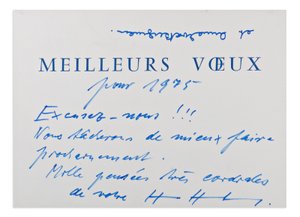 et
MEILLEURS VŒUX
pour 1975
Excusez-nous !!!
Nous tâcherons de mieux faire
prochainement.
Mille pensées très cordiales
de votre